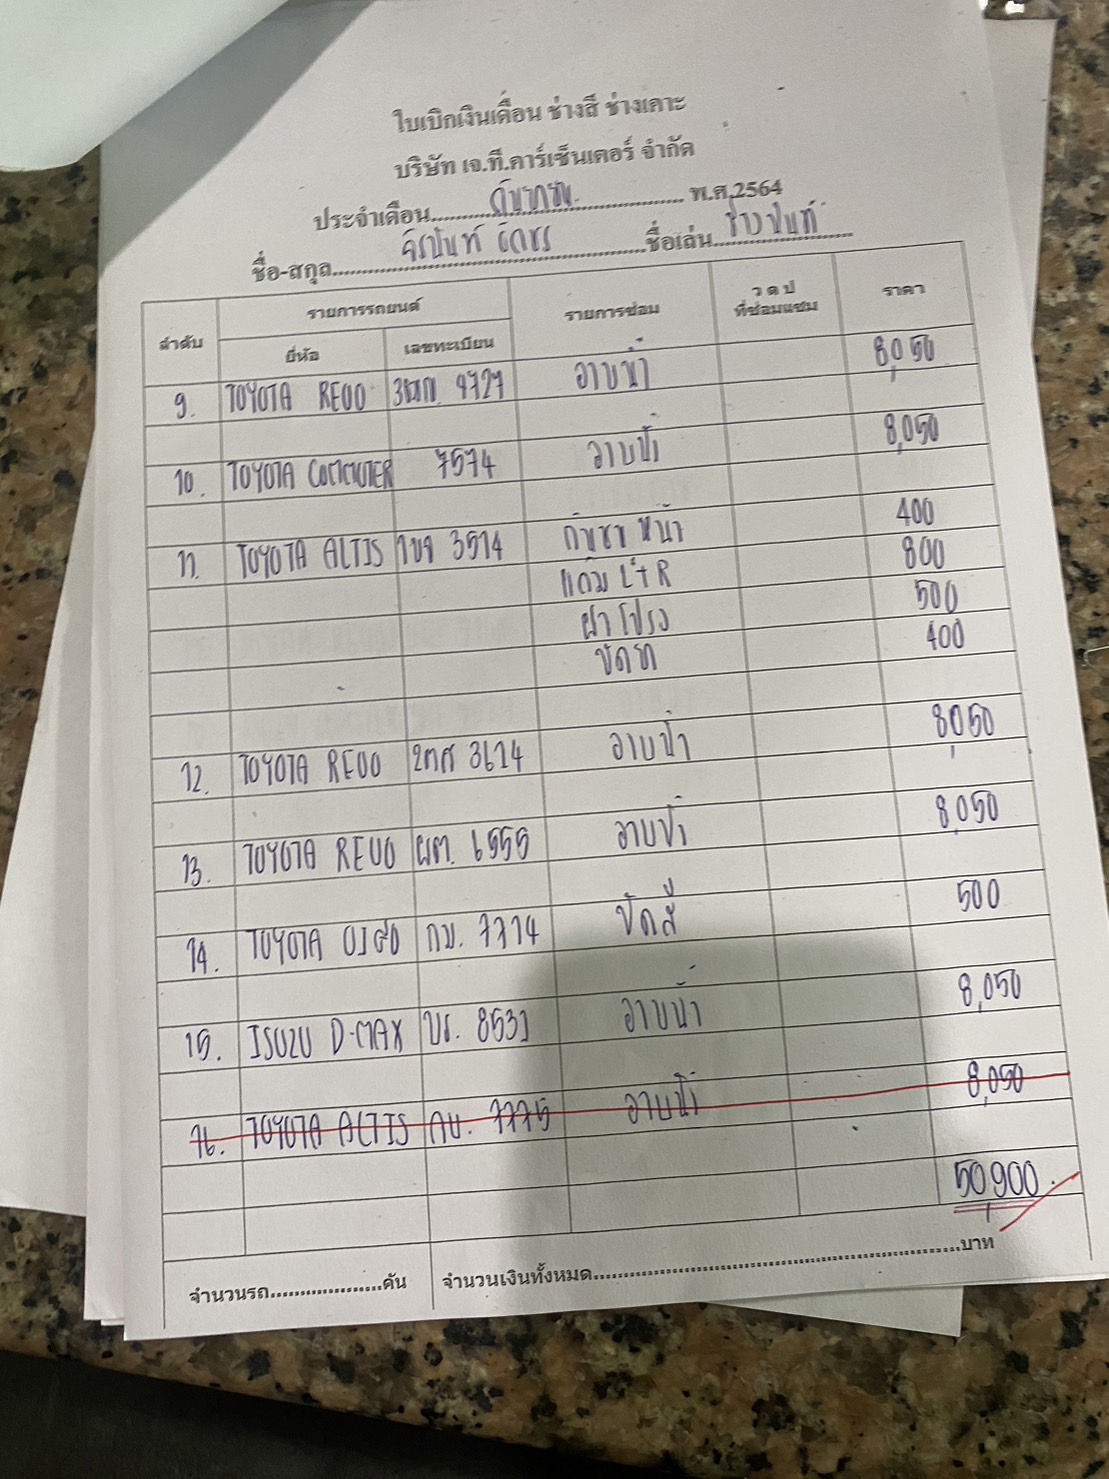 ใบเบิกเงินเดือน ช่างสี ช่างเคาะ
บริษัท เจ.ที.คาร์เซ็นเตอร์ จำกัด
ประจำเดือน กันยายน พ.ศ.2564
ชื่อ-สกุล จิรนันท์ ชื่อเล่น ช่างนันท์
ลำดับ รายการรถยนต์ รายการซ่อม ว ด ป ที่ซ่อมแซม ราคา
ยี่ห้อ เลขทะเบียน
9. TOYOTA REVO 9727 อาบน้ำ 8,050
10. TOYOTA COMMUTER 7574 อาบน้ำ 8,050
11. TOYOTA ALTIS 3514 กันชนหน้า 400
แก้ม L+R 800
ฝาโปรง 500
400
12. TOYOTA REVO 2ฒศ 3614 อาบน้ำ 8,050
13. TOYOTA REVO ผต. 6555 อาบน้ำ 8,050
14. TOYOTA VIGO กม. 7714 ขัดสี 500
15. ISUZU D-MAX บร. 8531 อาบน้ำ 8,050
16. TOYOTA ALTIS กบ. 7775 อาบน้ำ 8,050
50,900.
จำนวนรถ....................คัน จำนวนเงินทั้งหมด....................บาท